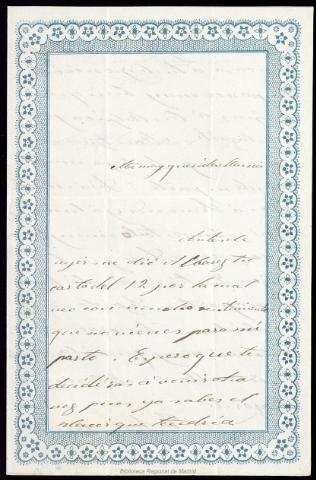 Mi muy querida
Antes de
ayer me dio tu
carta del 12 por la cual
veo con mucho sentimiento
que no vienes para mi
parte. Espero que te
decidirás á venir otra
vez pues ya sabes el
placer que tendría
Biblioteca Regional de Madrid